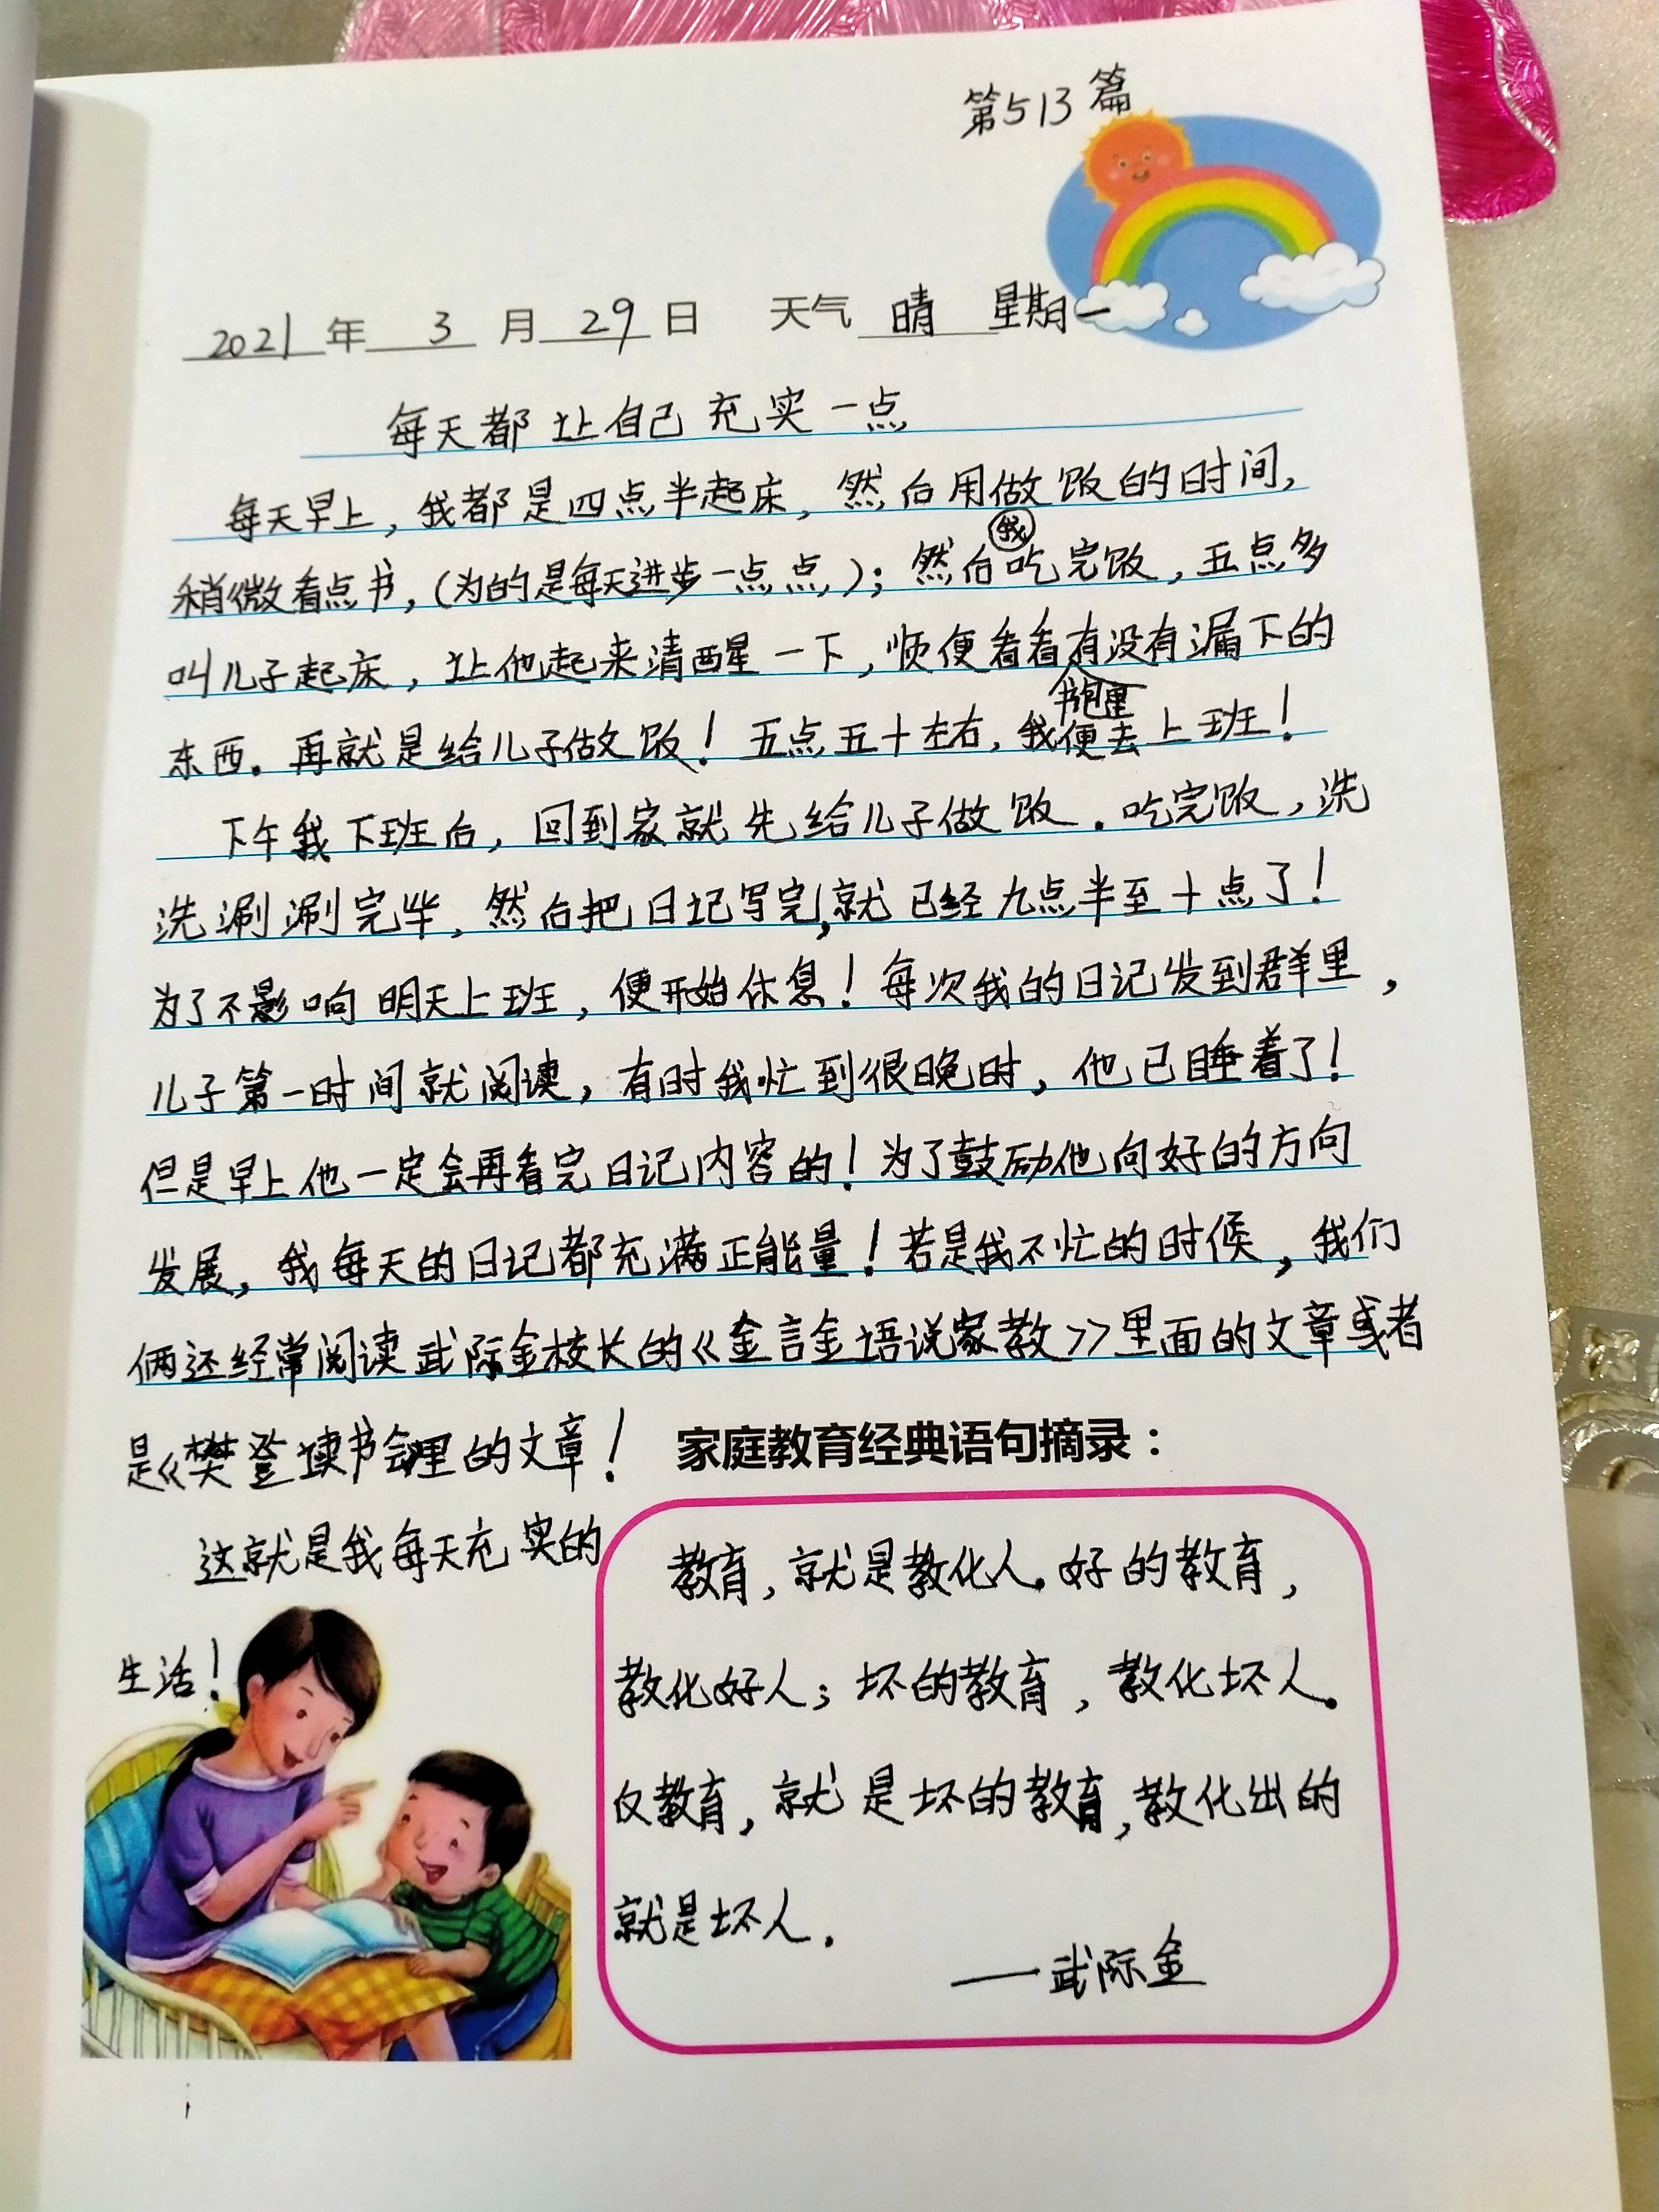 第513篇
2021年 3 月 29 日 天气 晴 星期一
每天都让自己充实一点
每天早上，我都是四点半起床，然后用做饭的时间，
稍微看点书，(为的是每天进步一点点)；然后我吃完饭，五点多
叫儿子起床，让他起来清醒一下，顺便看看书包里有没有漏下的
东西。再就是给儿子做饭！五点五十左右，我便去上班！
下午我下班后，回到家就先给儿子做饭．吃完饭，洗
洗涮涮完毕，然后把日记写完，就已经九点半至十点了！
为了不影响明天上班，便开始休息！每次我的日记发到群里，
儿子第一时间就阅读，有时我忙到很晚时，他已睡着了！
但是早上他一定会再看完日记内容的！为了鼓励他向好的方向
发展，我每天的日记都充满正能量！若是我不忙的时候，我们
俩还经常阅读武际金校长的《金言金语说家教》里面的文章或者
是《樊登读书会里的文章！
这就是我每天充实的
生活！
家庭教育经典语句摘录：
教育，就是教化人。好的教育，
教化好人；坏的教育，教化坏人。
仅教育，就是坏的教育，教化出的
就是坏人．
——武际金